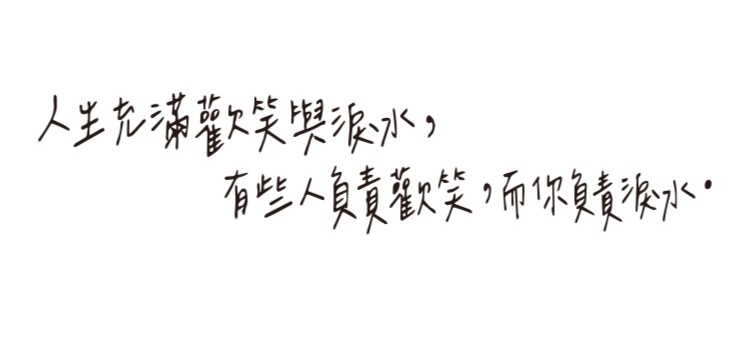 人生充滿歡笑與淚水，
有些人負責歡笑，而你負責淚水。